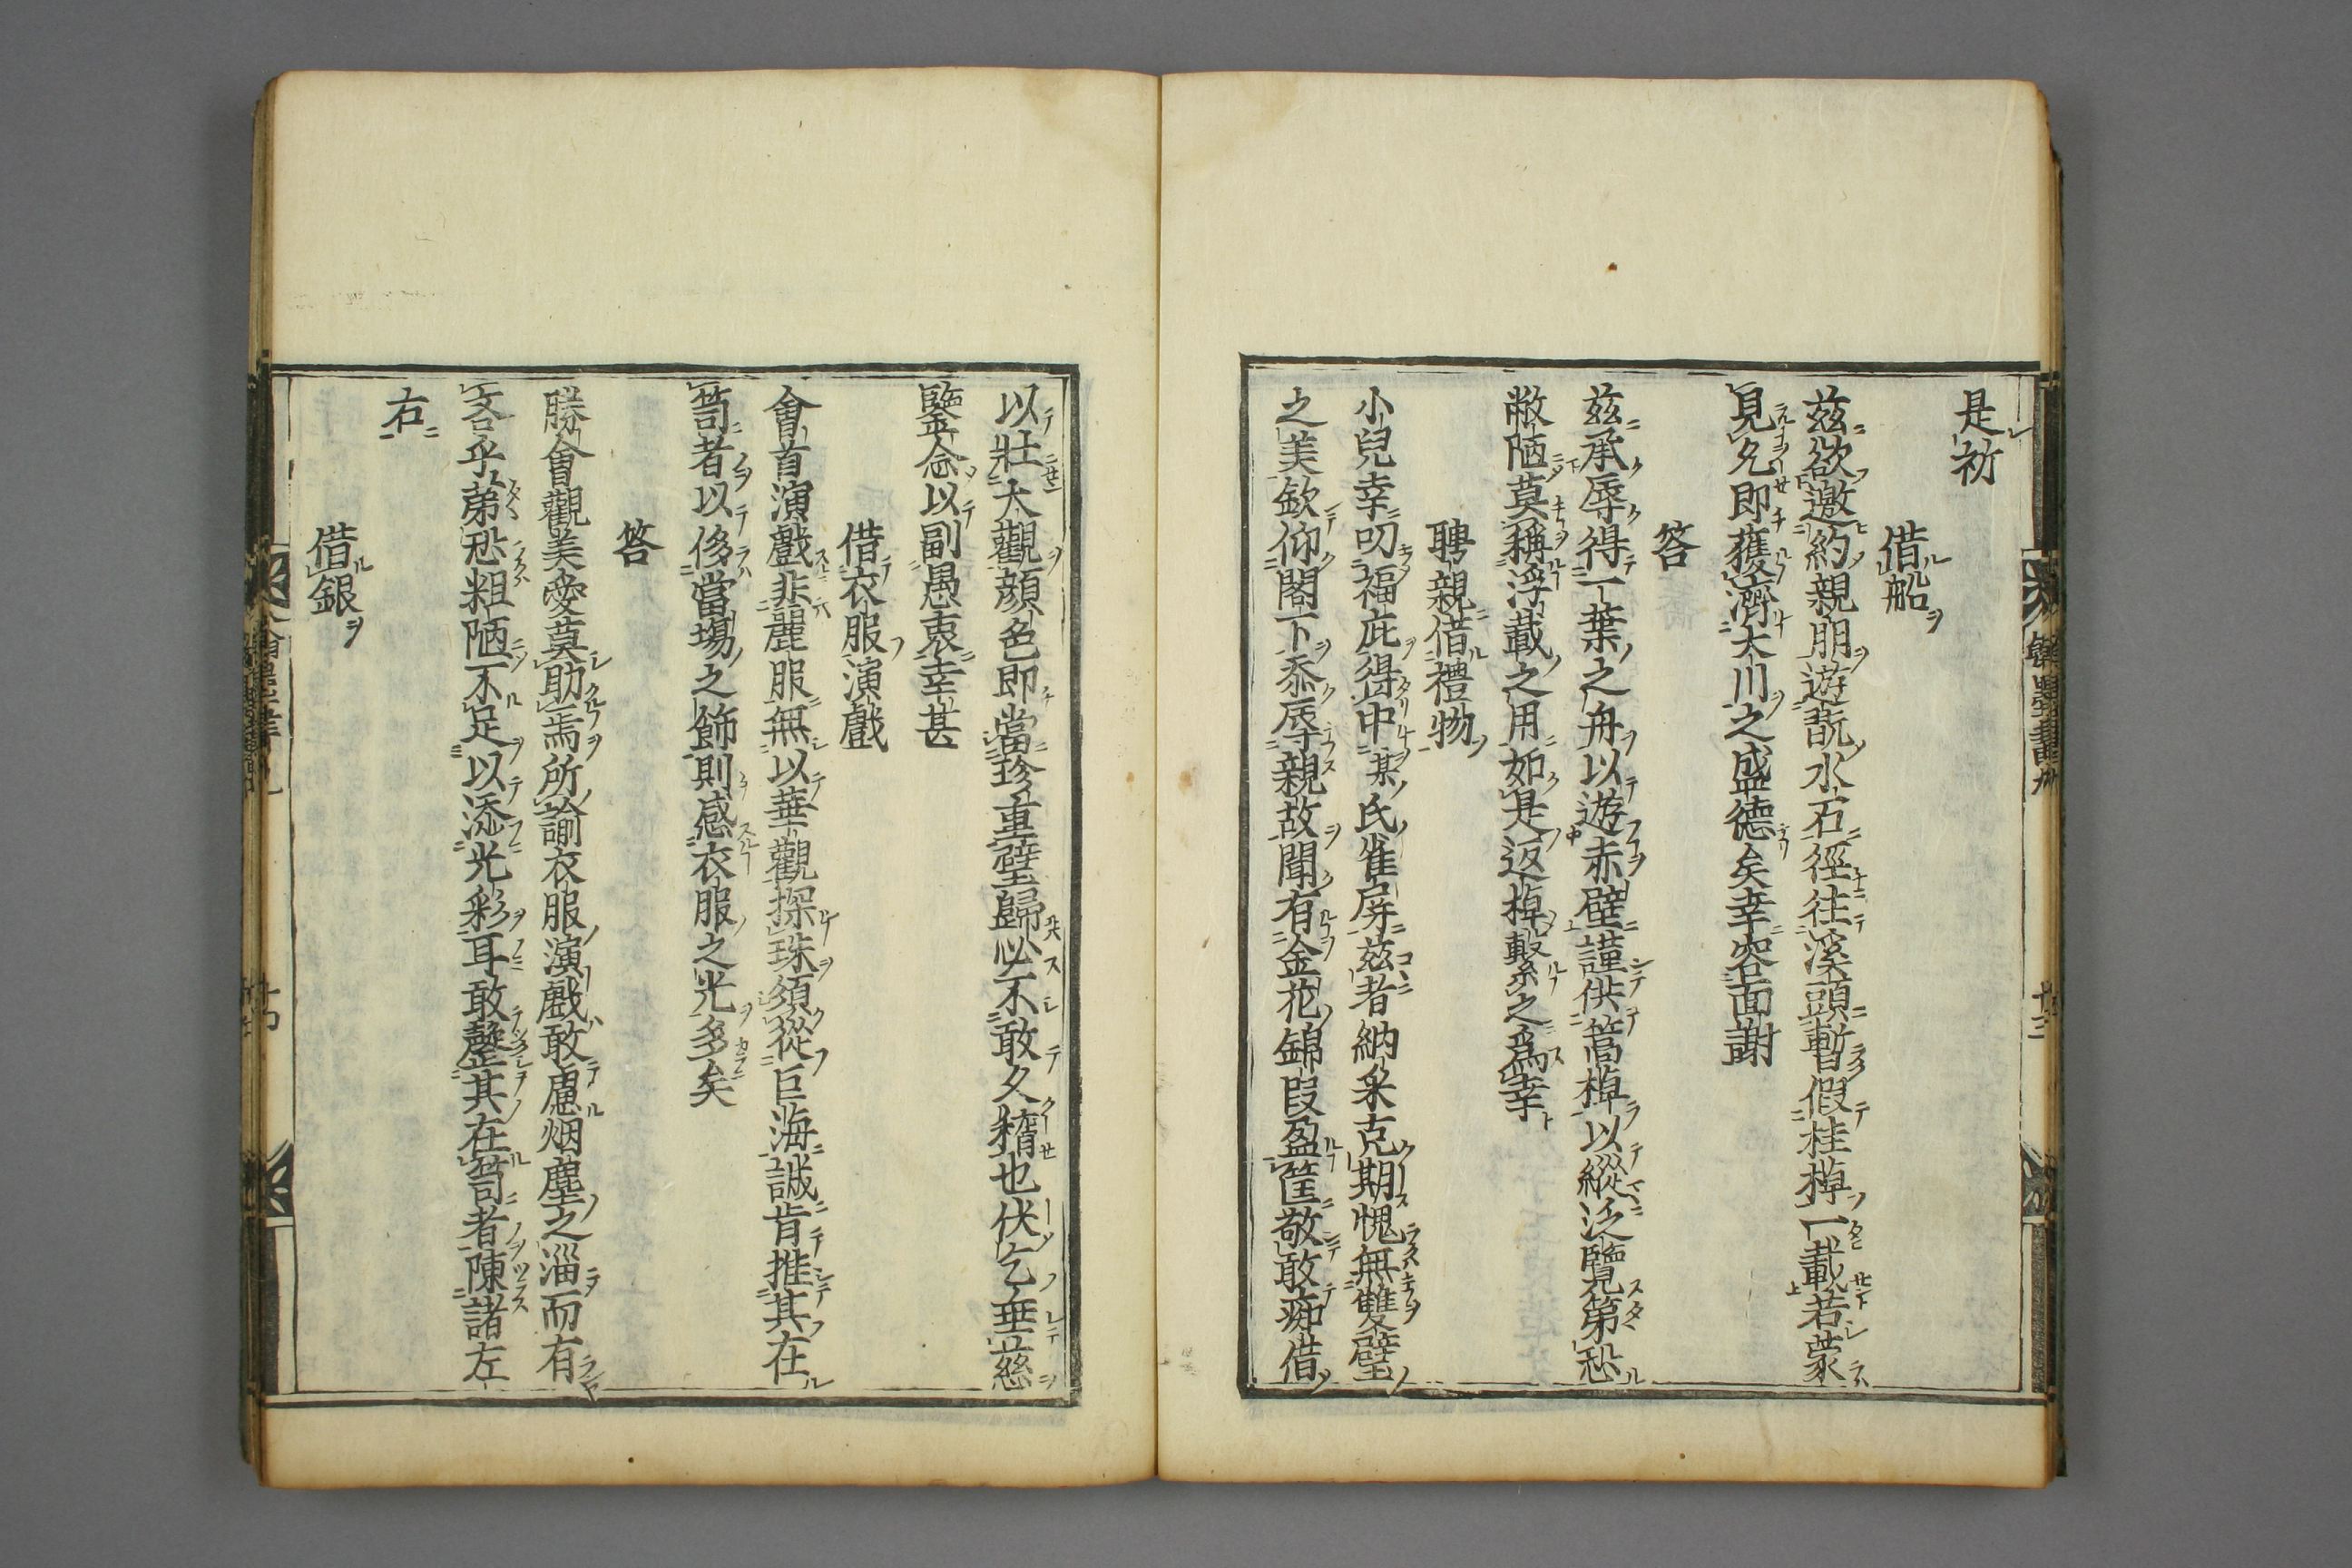 是祈
借船
茲欲邀約親朋遊翫水石徑往溪頭暫假桂棹一載若蒙
見允即獲濟大川之盛德矣幸容面謝
答
茲承辱得一葉之舟以遊赤壁謹供篙棹以縱泛覽第恐
敝陋莫稱浮載之用如是返棹繫之爲幸
聘親借禮物
小兒幸叨福庇得中某氏雀屏茲者納采克期愧無雙璧
之美欽仰閣下忝辱親故聞有金花錦段盈筐敬敢痴借
以壯大觀顔色即當珍重璧歸必不敢久稽也伏乞垂慈
鑒念以副愚衷幸甚
借衣服演戲
會首演戲非麗服無以華觀探珠須從巨海誠肯推其在
笥者以侈當塲之飾則感衣服之光多矣
答
勝會觀美愛莫助焉所諭衣服演戲敢慮烟塵之淄而有
吝乎弟恐粗陋不足以添光彩耳敢罄其在笥者陳諸左
右
借銀